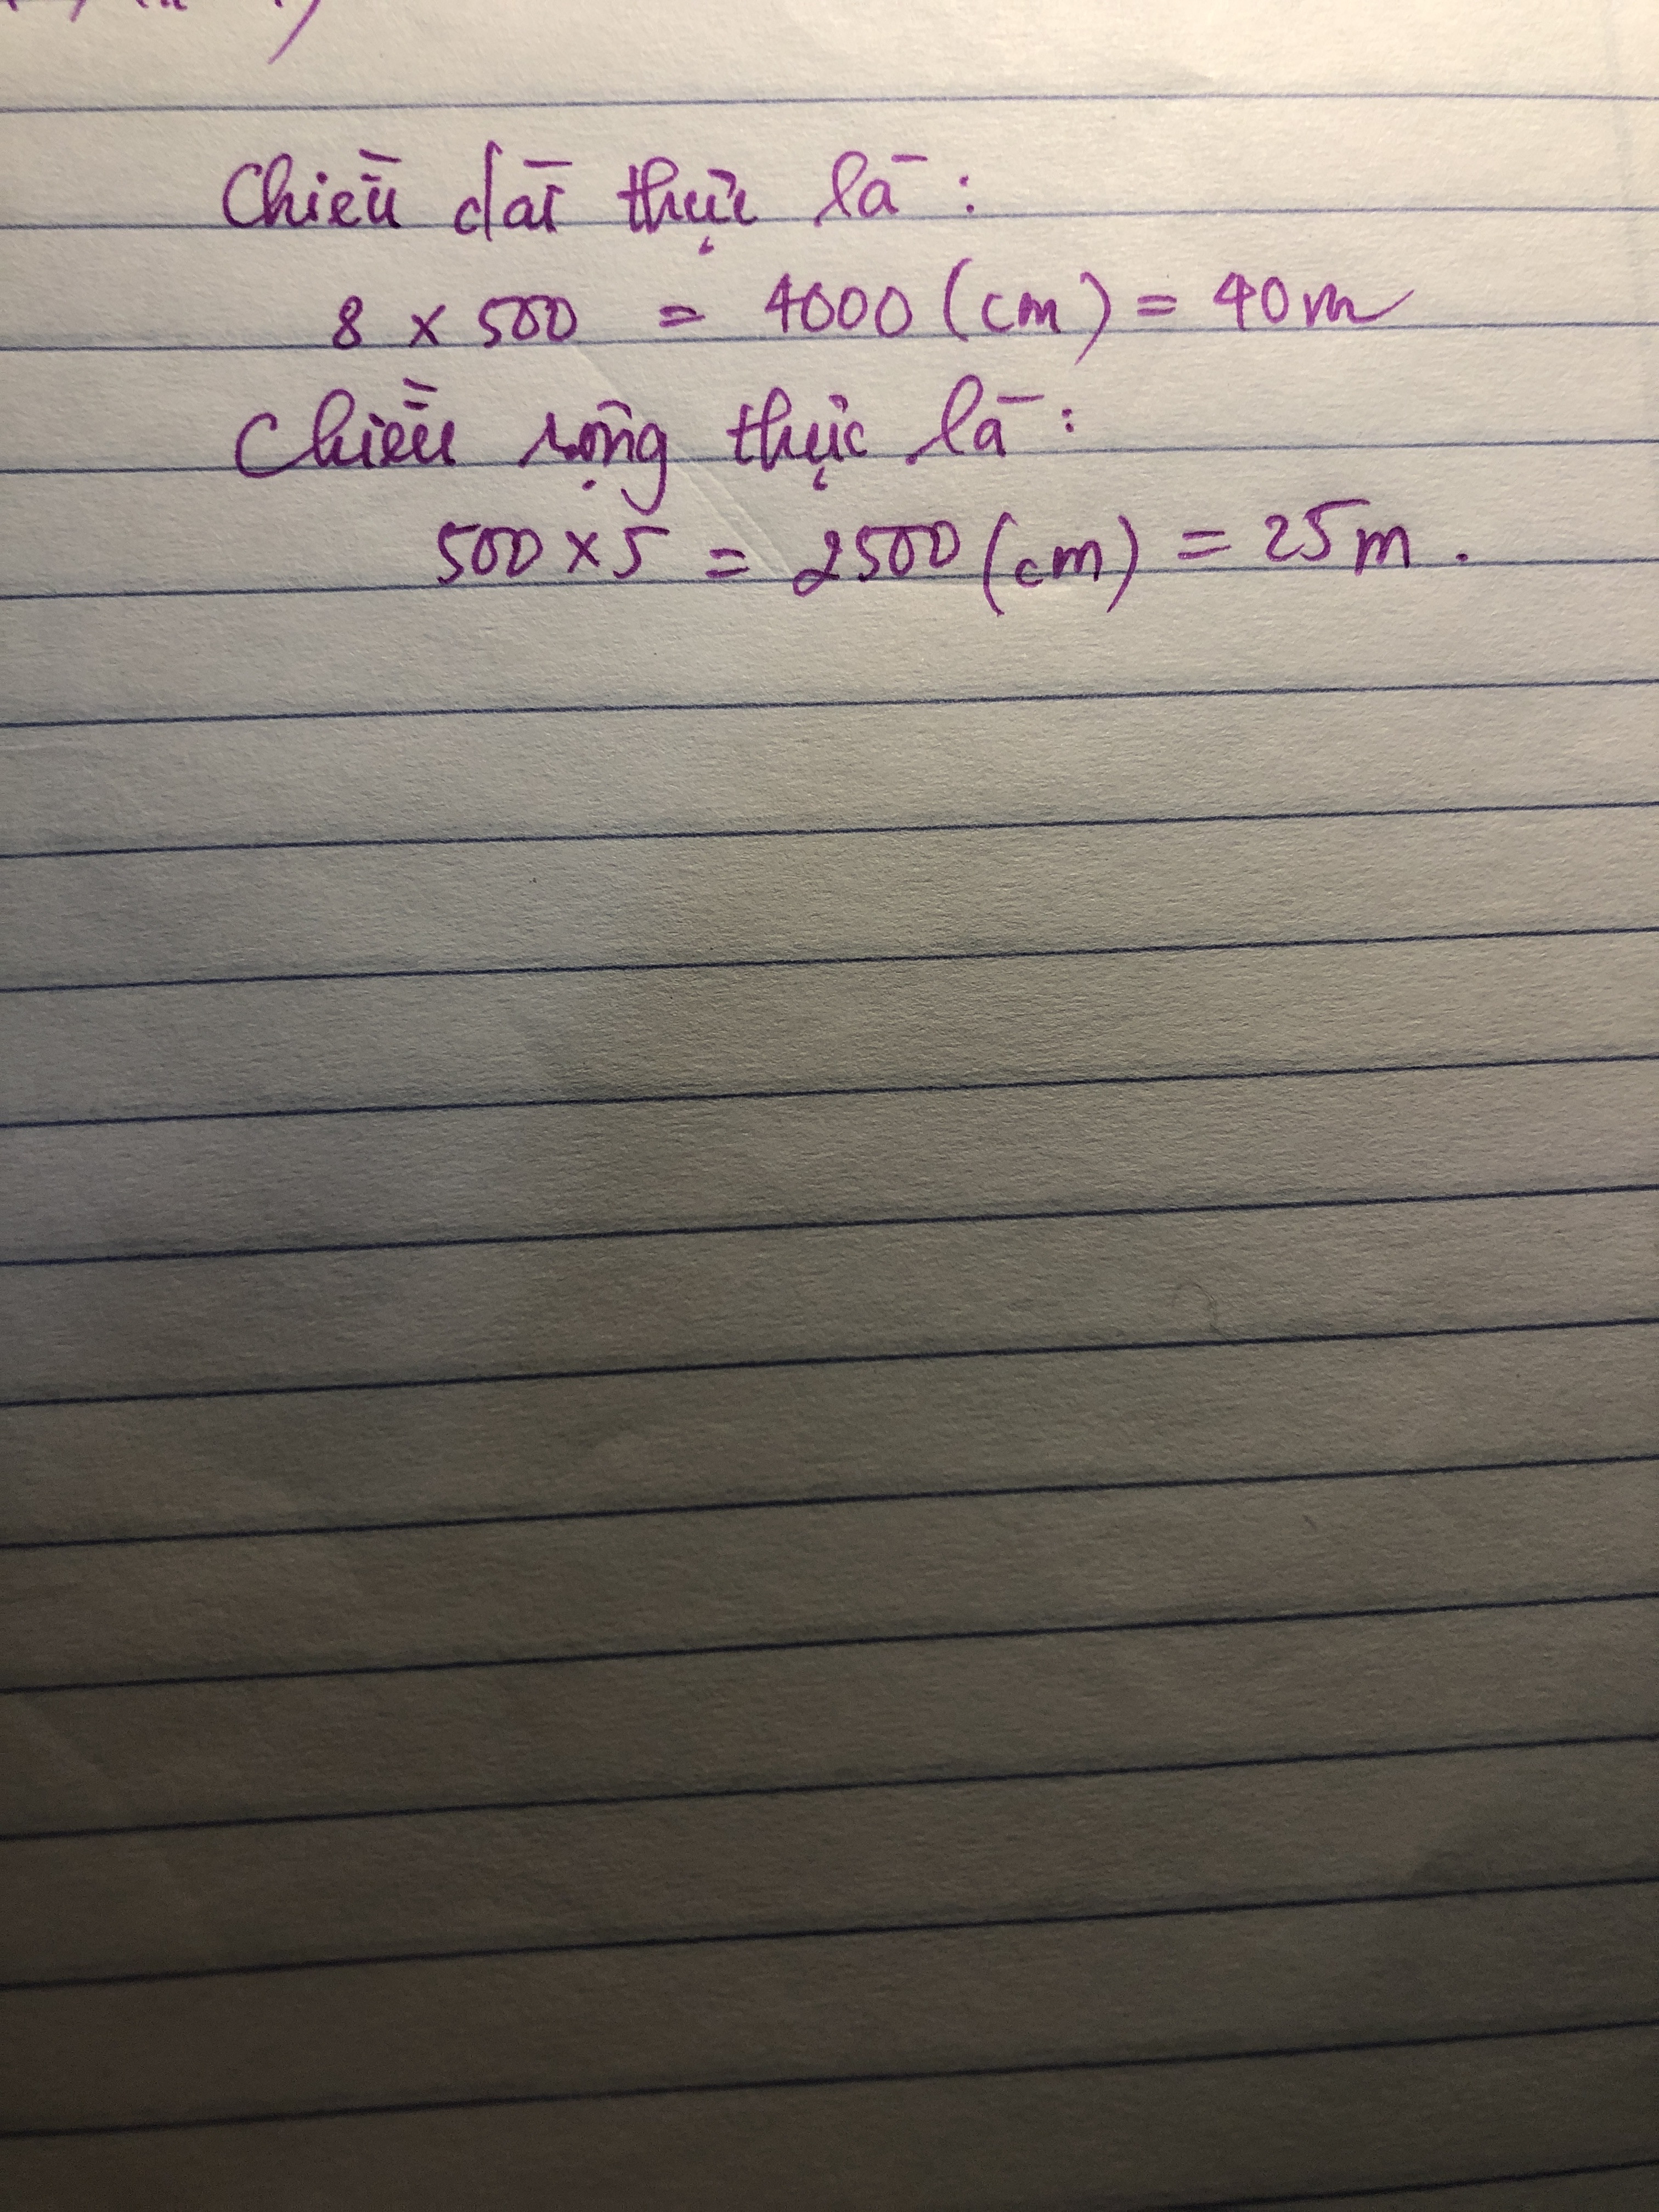 Chiều dài thực là:
8 x 500 = 4000 (cm) = 40m
Chiều rộng thực là:
500 x 5 = 2500 (cm) = 25m.